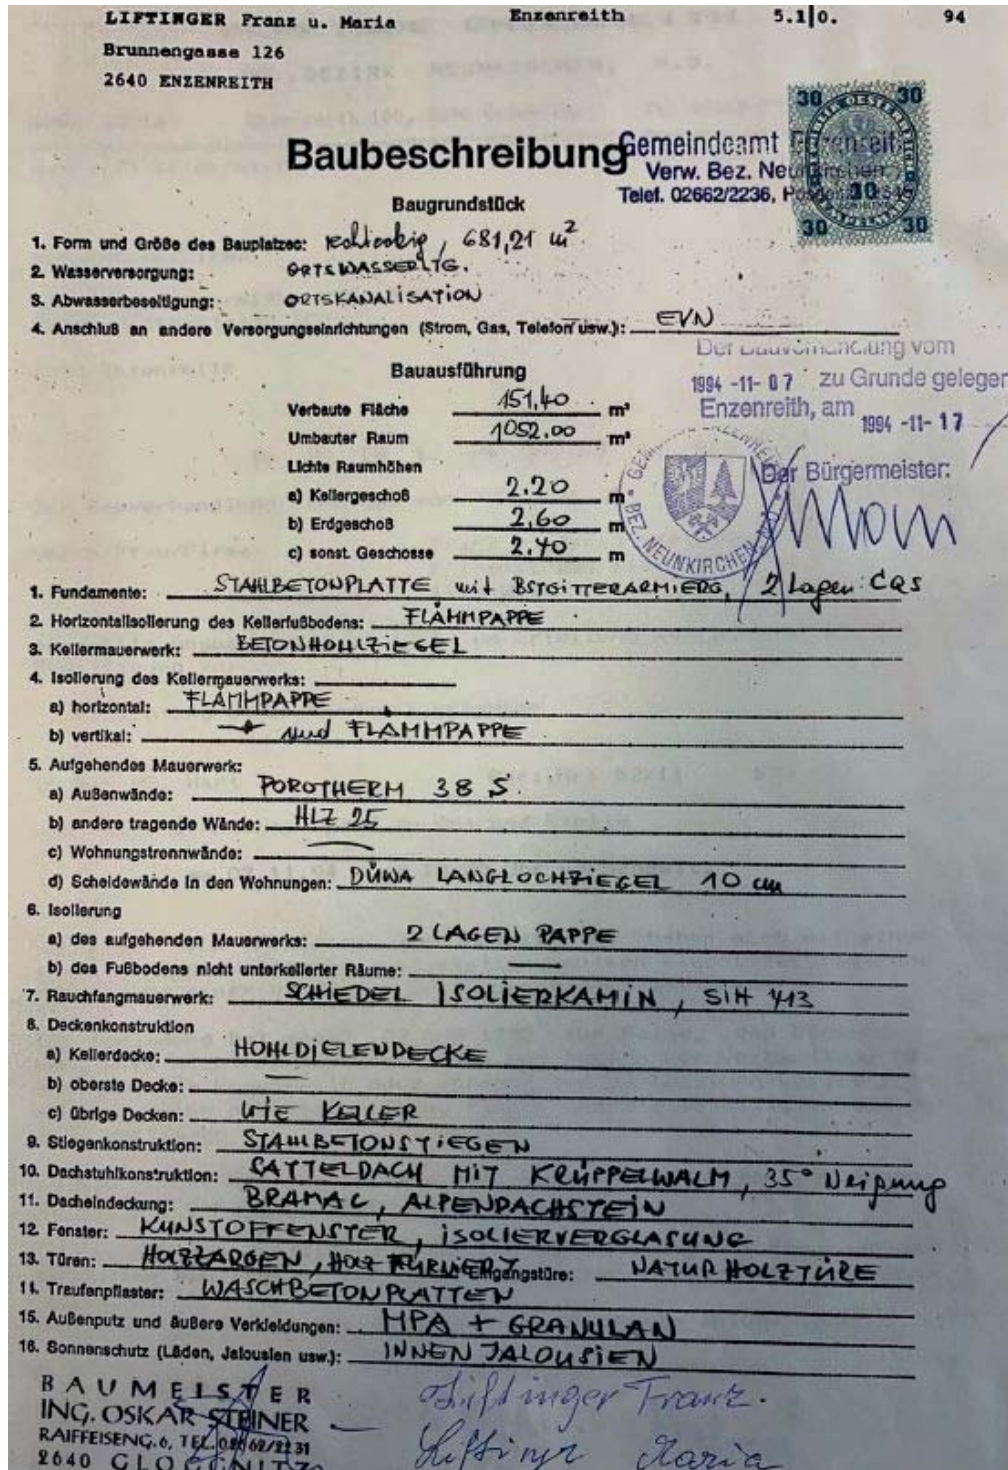 LIFTINGER Franz u. Maria Enzenreith 5.10. 94
Brunnengasse 126
2640 ENZENREITH
30 30
Baubeschreibung
Gemeindeamt Enzenreith
Verw. Bez. Neunkirchen
Telef. 02662/2236,
30
30 30
Baugrundstück
1. Form und Größe des Bauplatzes: rechteckig, 681,21 m²
2. Wasserversorgung: ORTSWASSERLTG.
3. Abwasserbeseitigung: ORTSKANALISATION
4. Anschluß an andere Versorgungseinrichtungen (Strom, Gas, Telefon usw.): EVN
Der Bauverhandlung vom
1994 -11- 07 zu Grunde gelegen
Enzenreith, am 1994 -11- 17
Der Bürgermeister:
BEZ. NEUNKIRCHEN
Bauausführung
Verbaute Fläche 151,40 m²
Umbauter Raum 1052,00 m³
Lichte Raumhöhen
a) Kellergeschoß 2.20 m
b) Erdgeschoß 2,60 m
c) sonst. Geschosse 2.40 m
1. Fundamente: STAHLBETONPLATTE mit BSTGITTERARMIERG, 2 Lagen: CQS
2. Horizontalisolierung des Kellerfußbodens: FLÄMMPAPPE
3. Kellermauerwerk: BETONHOHLZIEGEL
4. Isolierung des Kellermauerwerks:
a) horizontal: FLÄMMPAPPE
b) vertikal: FLAMMPAPPE
5. Aufgehendes Mauerwerk:
a) Außenwände: POROTHERM 38 S.
b) andere tragende Wände: HLZ 25
c) Wohnungstrennwände:
d) Scheidewände in den Wohnungen: DÜWA LANGLOCHZIEGEL 10 cm
6. Isolierung
a) des aufgehenden Mauerwerks: 2 LAGEN PAPPE
b) des Fußbodens nicht unterkellerter Räume:
7. Rauchfangmauerwerk: SCHIEDEL ISOLIERKAMIN, SIH
8. Deckenkonstruktion
a) Kellerdecke: HOHLDIELENDECKE
b) oberste Decke:
c) übrige Decken: WIE KELLER
9. Stiegenkonstruktion: STAHLBETONSTIEGEN
10. Dachstuhlkonstruktion: SATTELDACH MIT KRÜPPELWALM, 35° Neigung
11. Dacheindeckung: BRAMAC, ALPENDACHSTEIN
12. Fenster: KUNSTOFFENSTER, ISOLIERVERGLASUNG
13. Türen: HOLZZARGEN, HOLZ FURNIERT Eingangstüre: NATURHOLZTÜRE
14. Traufenpflaster: WASCHBETONPLATTEN
15. Außenputz und äußere Verkleidungen: MPA + GRANULAN
16. Sonnenschutz (Läden, Jalousien usw.): INNENJALOUSIEN
BAUMEISTER
ING. OSKAR STEINER
RAIFFEISENG. 6, TEL. 02662/2231
2640 GLOGGNITZ
Liftinger Franz.
Liftinger Maria